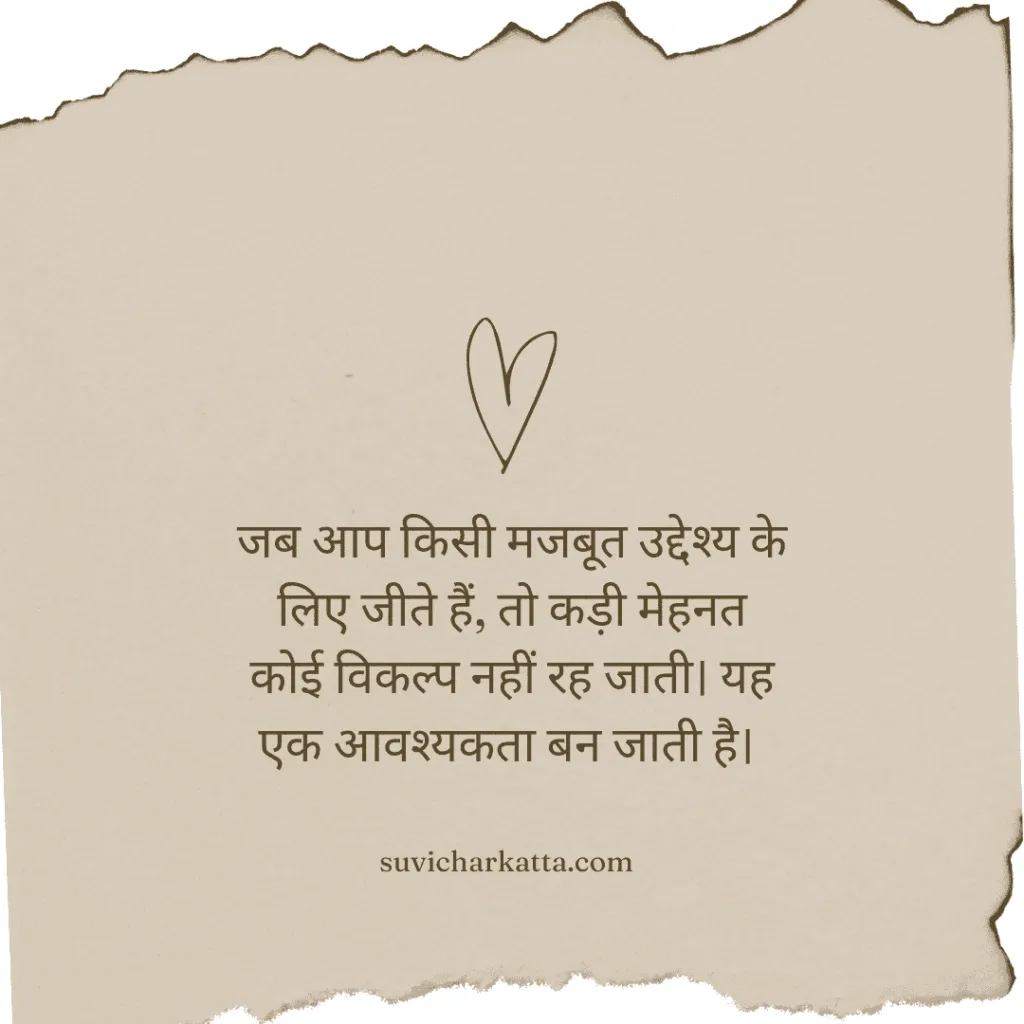 जब आप किसी मजबूत उद्देश्य के
लिए जीते हैं, तो कड़ी मेहनत
कोई विकल्प नहीं रह जाती। यह
एक आवश्यकता बन जाती है।
suvicharkatta.com